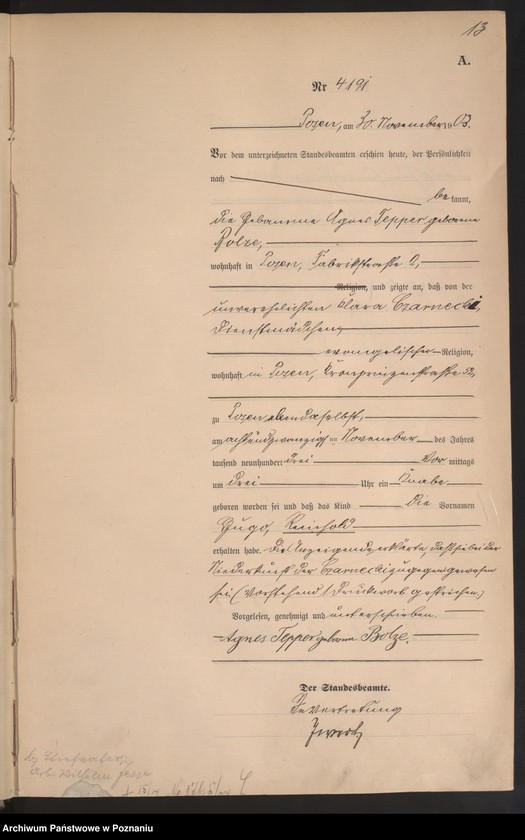 13
A.
Nr 4191
Posen, am 30. November 1903.
Vor dem unterzeichneten Standesbeamten erschien heute, der Persönlichkeit
nach
be kannt,
die Hebamme Agnes Tepper geborene
Bolze,
wohnhaft in Posen, Fabrikstraße 2,
Religion, und zeigte an, daß von der
unverehelichten Klara Czarnecki,
Dienstmädchen,
evangelischer Religion,
wohnhaft in Posen, Kronprinzenstraße 52,
zu Posen, ebendaselbst,
am achtundzwanzigsten November des Jahres
tausend neunhundert drei Vor mittags
um drei Uhr ein Knabe
geboren worden sei und daß das Kind die Vornamen
Hugo, Reinhold
erhalten habe. Die Anzeigende erklärte, daß sie bei der
Niederkunft der Czarnecki zugegen gewesen
sei. (Vorstehend 1 Druckwort gestrichen.)
Vorgelesen, genehmigt und unterschrieben.
Agnes Tepper geborene Bolze.
Der Standesbeamte.
In Vertretung
Wilhelm
Archiwum Państwowe w Poznaniu